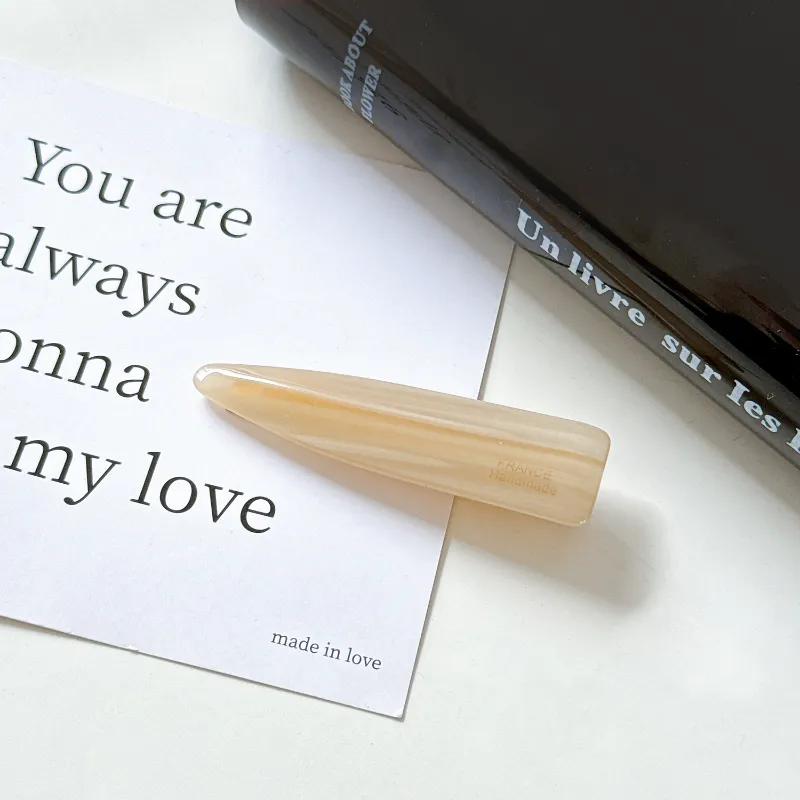 You are
always
onna
my love
made in love
FRANCE
Handmade
OOK ABOUT
FLOWER
Un livre sur les